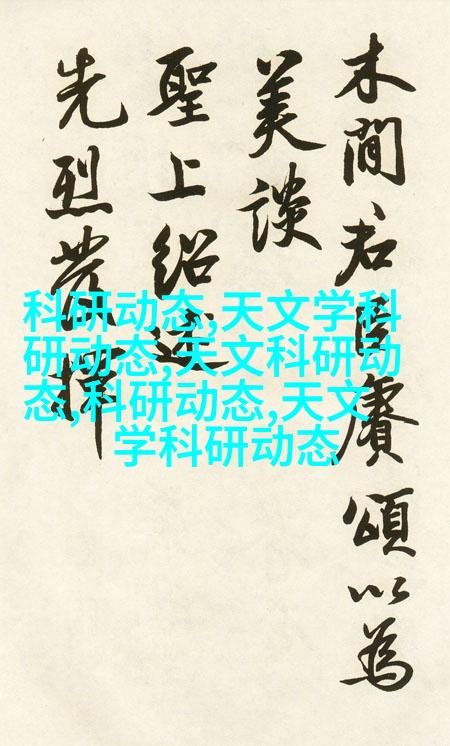 木間君臣賡頌以為
美談
聖上紹述
先烈
科研动态,天文学科
研动态,天文科研动
态,科研动态,天文
学科研动态